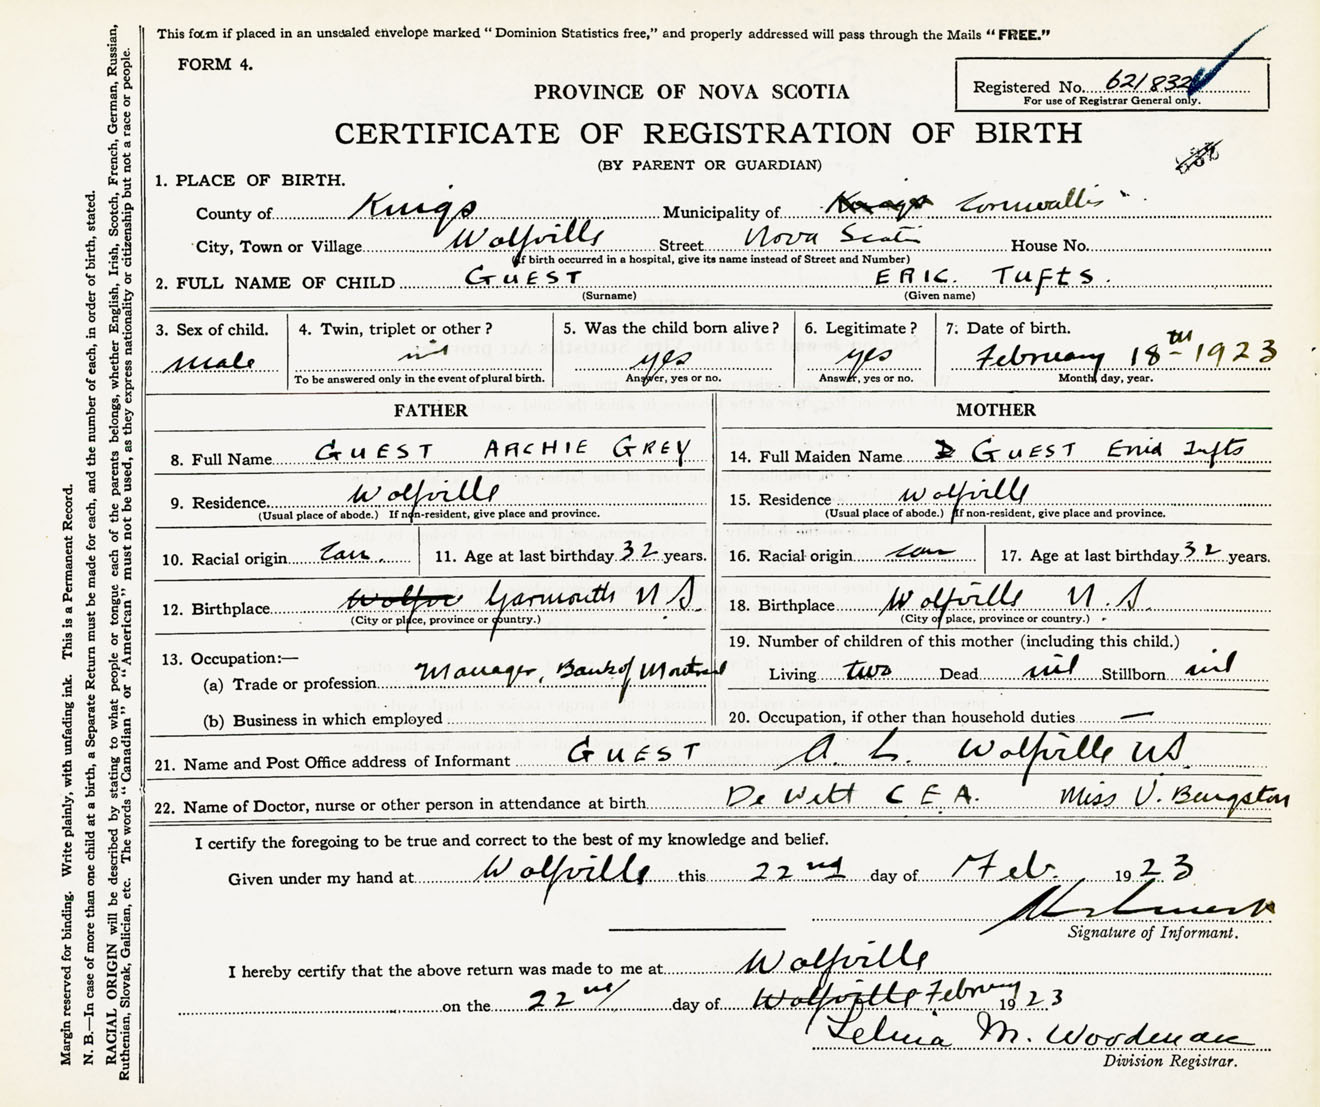 This form if placed in an unsealed envelope marked "Dominion Statistics free," and properly addressed will pass through the Mails "FREE."
FORM 4.
Registered No. 621832
For use of Registrar General only.
PROVINCE OF NOVA SCOTIA
CERTIFICATE OF REGISTRATION OF BIRTH
(BY PARENT OR GUARDIAN)
1. PLACE OF BIRTH.
County of Kings Municipality of Kings Cornwallis
City, Town or Village Wolfville Street Nova Scotia House No.
(If birth occurred in a hospital, give its name instead of Street and Number)
2. FULL NAME OF CHILD GUEST ERIC. TUFTS.
(Surname) (Given name)
3. Sex of child. 4. Twin, triplet or other? 5. Was the child born alive? 6. Legitimate? 7. Date of birth.
male nil yes yes February 18th 1923
To be answered only in the event of plural birth. Answer, yes or no. Answer, yes or no. Month, day, year.
FATHER MOTHER
8. Full Name GUEST ARCHIE GREY 14. Full Maiden Name GUEST Enid Tufts
9. Residence Wolfville 15. Residence Wolfville
(Usual place of abode.) If non-resident, give place and province. (Usual place of abode.) If non-resident, give place and province.
10. Racial origin Can. 11. Age at last birthday 32 years. 16. Racial origin can 17. Age at last birthday 32 years.
12. Birthplace Yarmouth N S. 18. Birthplace Wolfville N.S.
(City or place, province or country.) (City or place, province or country.)
13. Occupation:— 19. Number of children of this mother (including this child.)
(a) Trade or profession Manager, Bank of Montreal Living two Dead nil Stillborn nil
(b) Business in which employed 20. Occupation, if other than household duties —
21. Name and Post Office address of Informant GUEST A. Wolfville NS.
22. Name of Doctor, nurse or other person in attendance at birth De Witt C E A. Miss V.
I certify the foregoing to be true and correct to the best of my knowledge and belief.
Given under my hand at Wolfville this 22nd day of Feb. 1923
Signature of Informant.
I hereby certify that the above return was made to me at Wolfville
on the 22nd day of Wolfville February 1923
M. Woodman
Division Registrar.
Margin reserved for binding. Write plainly, with unfading ink. This is a Permanent Record.
N. B.—In case of more than one child at a birth, a Separate Return must be made for each, and the number of each, in order of birth, stated.
RACIAL ORIGIN will be described by stating to what people or tongue each of the parents belongs, whether English, Irish, Scotch, French, German, Russian,
Ruthenian, Slovak, Galician, etc. The words "Canadian" or "American" must not be used, as they express nationality or citizenship but not a race or people.